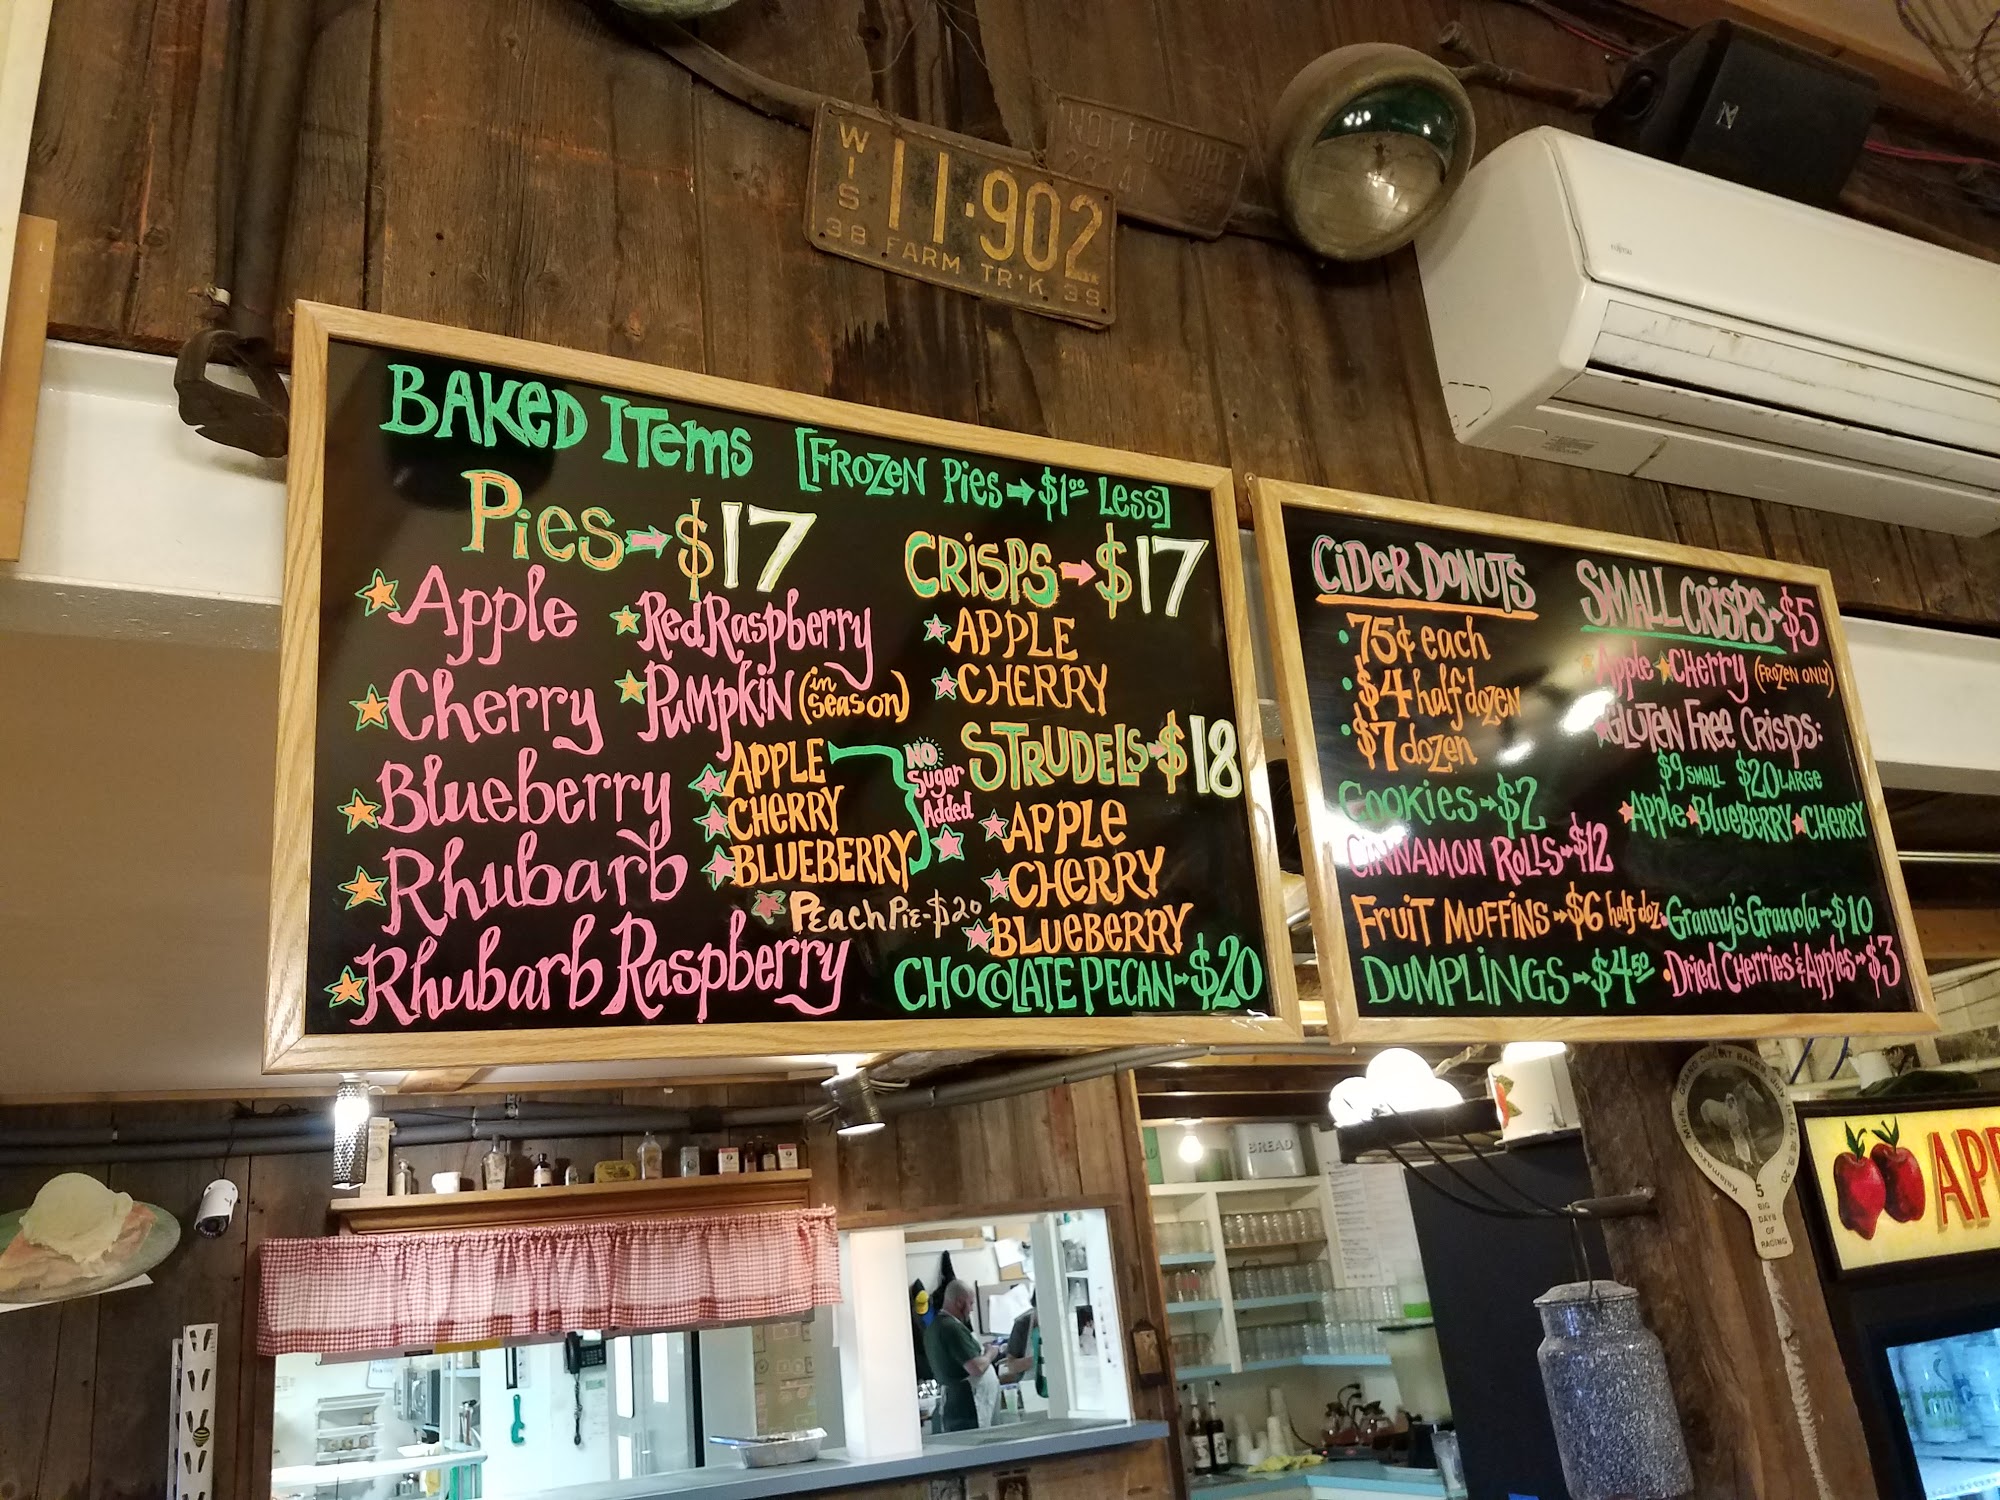 WIS
11-902
38 FARM TR'K 39
NOT FOR HIRE
BAKED ITEMS [FROZEN PIES → $1.00 LESS]
PIES → $17
Apple
Cherry
Blueberry
Rhubarb
Rhubarb Raspberry
Red Raspberry
PUMPKIN (in season)
APPLE
CHERRY
BLUEBERRY
NO Sugar Added
Peach Pie - $20
CRISPS → $17
APPLE
CHERRY
STRUDELS → $18
APPLE
CHERRY
BLUEBERRY
CHOCOLATE PECAN → $20
CIDER DONUTS
75¢ each
$4 half dozen
$7 dozen
COOKIES → $2
CINNAMON ROLLS → $12
FRUIT MUFFINS → $6 half doz.
DUMPLINGS → $4.50
SMALL CRISPS → $5
Apple CHERRY (FROZEN ONLY)
GLUTEN FREE CRISPS:
$9 SMALL $20 LARGE
Apple BLUEBERRY CHERRY
Granny's Granola → $10
Dried Cherries & Apples → $3
BREAD
5
BIG
DAYS
OF
RACING